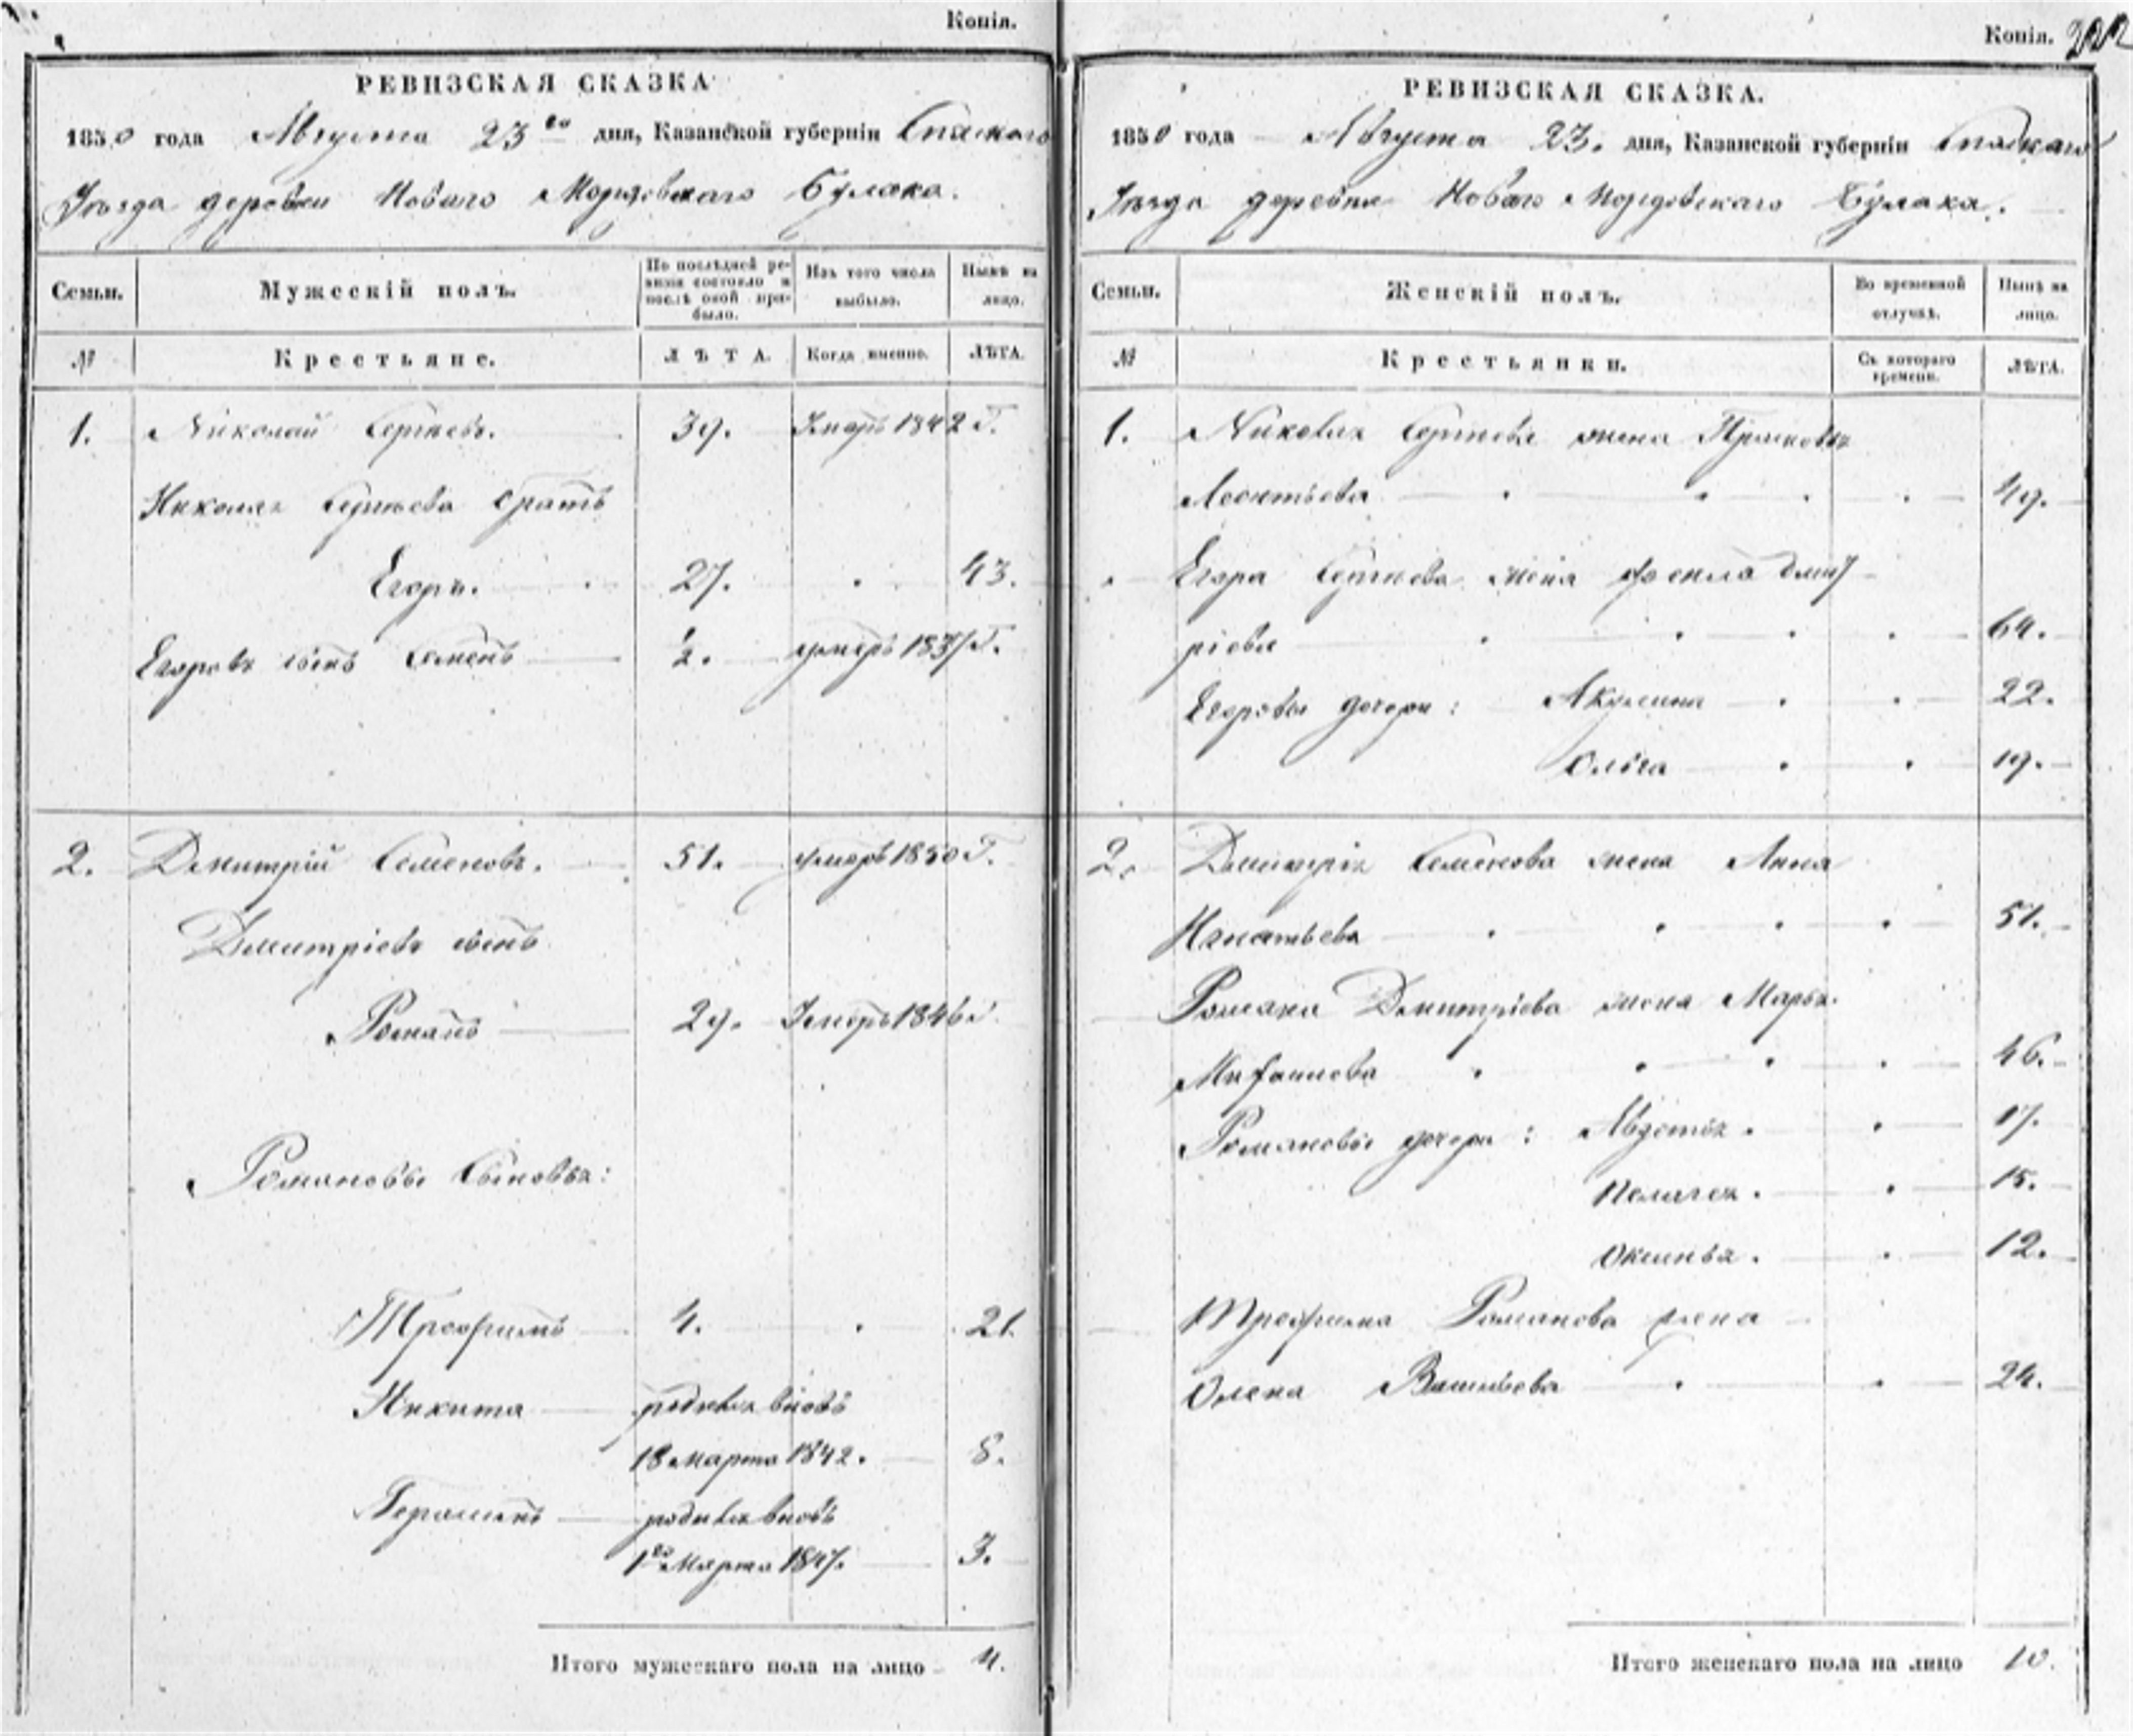 Копія.
РЕВИЗСКАЯ СКАЗКА
1850 года Августа 23го дня, Казанской губерніи Спаскаго
Уѣзда деревни Новаго Мордовскаго Булака.
Семьи.
Мужескій полъ.
По послѣдней ре-
визіи состояло и
послѣ оной при-
было.
Изъ того числа
выбыло.
Нынѣ на
лицо.
№
Крестьяне.
ЛѢТА.
Когда именно.
ЛѢТА.
1. Николай Сергѣевъ. 39. Умеръ 1842 г.
Николая Сергѣева братъ
Егоръ. 27. 43.
Егоровъ сынъ Семенъ 1/2. умеръ 1837 г.
2. Дмитрій Семеновъ. 51. умеръ 1850 г.
Дмитріевъ сынъ
Романъ 29. Умеръ 1846 г.
Романовы Сыновья:
Трофимъ 4. 21.
Никита родился вновь
18 марта 1842. 8.
Герасимъ родился вновь
1го Марта 1847. 3.
Итого мужескаго пола на лицо 4.
Копія. 222
РЕВИЗСКАЯ СКАЗКА.
1850 года Августа 23. дня, Казанской губерніи Спаскаго
Уѣзда деревни Новаго Мордовскаго Булака.
Семьи.
Женскій полъ.
Во временной
отлучкѣ.
Нынѣ на
лицо.
№
Крестьянки.
Съ котораго
времени.
ЛѢТА.
1. Николая Сергѣева жена Прасковья
Леонтьева 49.
Егора Сергѣева жена Фекла Дмит
ріева 64.
Егоровы дочери: Акулина 22.
Ольга 19.
2. Дмитрія Семенова жена Анна
Игнатьева 51.
Романа Дмитріева жена Марья
46.
Романовы дочери: Авдотья. 17.
Пелагея. 15.
Оксинья. 12.
Трофима Романова жена
Олена Васильева 24.
Итого женскаго пола на лицо 10.